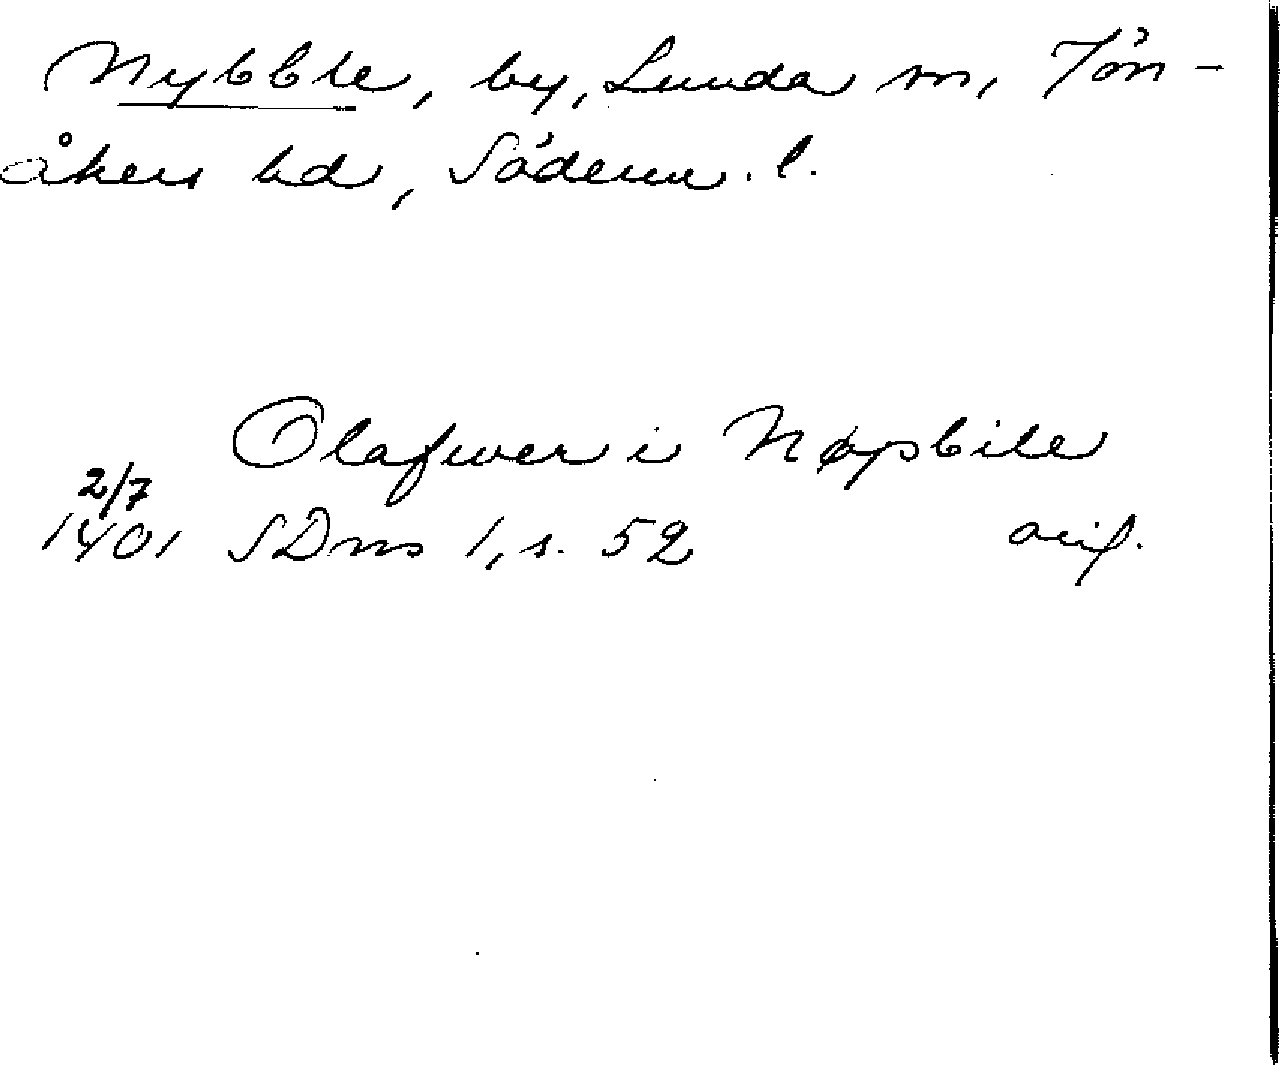 Nybble, by, Lunda sn, Jön-
åkers hd, Söderm. l.
Olafwer i Nøpbile
2/7
1401 SDns 1, s. 52 orig.